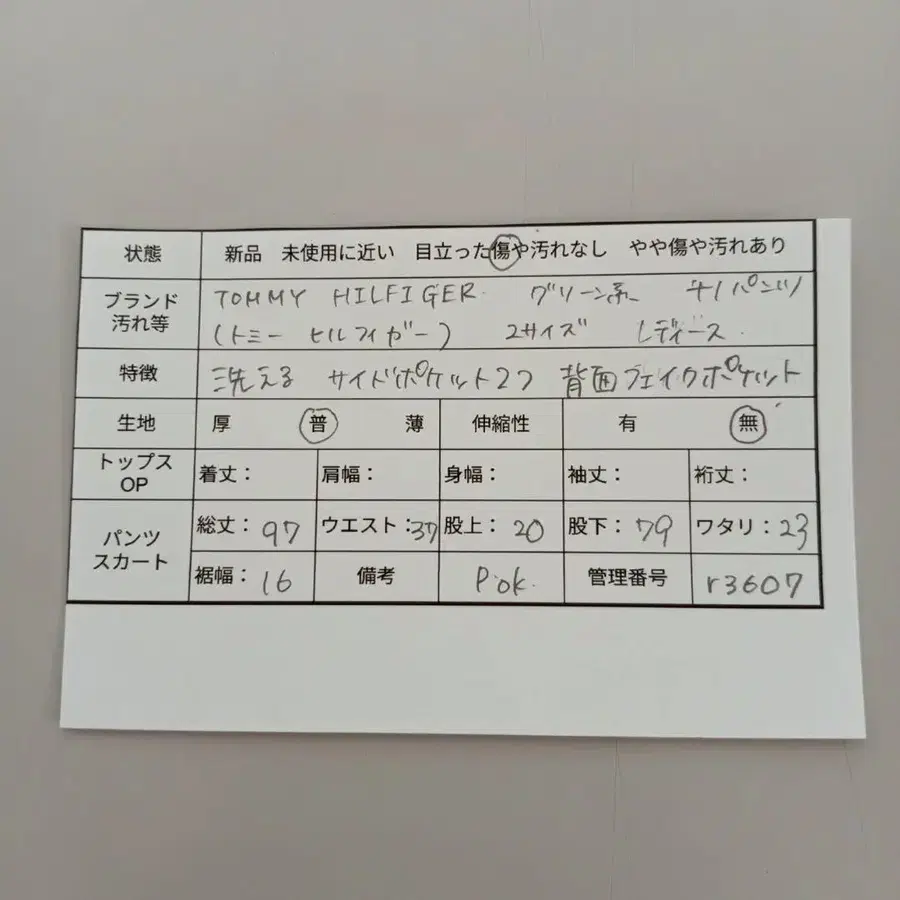 状態 新品 未使用に近い 目立った傷や汚れなし やや傷や汚れあり
ブランド 汚れ等 TOMMY HILFIGER グリーン系 チノパンツ
(トミー ヒルフィガー) 2サイズ レディース
特徴 洗える サイドポケット2つ 背面フェイクポケット
生地 厚 普 薄 伸縮性 有 無
トップス OP 着丈: 肩幅: 身幅: 袖丈: 裄丈:
パンツ スカート 総丈: 97 ウエスト: 37 股上: 20 股下: 79 ワタリ: 23
裾幅: 16 備考 Pok. 管理番号 r3607